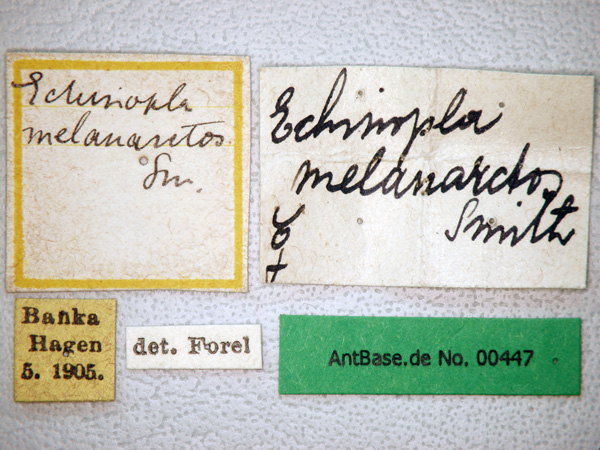 Echinopla
melanarctos
Sm.
Echinopla
melanarctos
Smith
☿
Banka
Hagen
5. 1905.
det. Forel
AntBase.de No. 00447